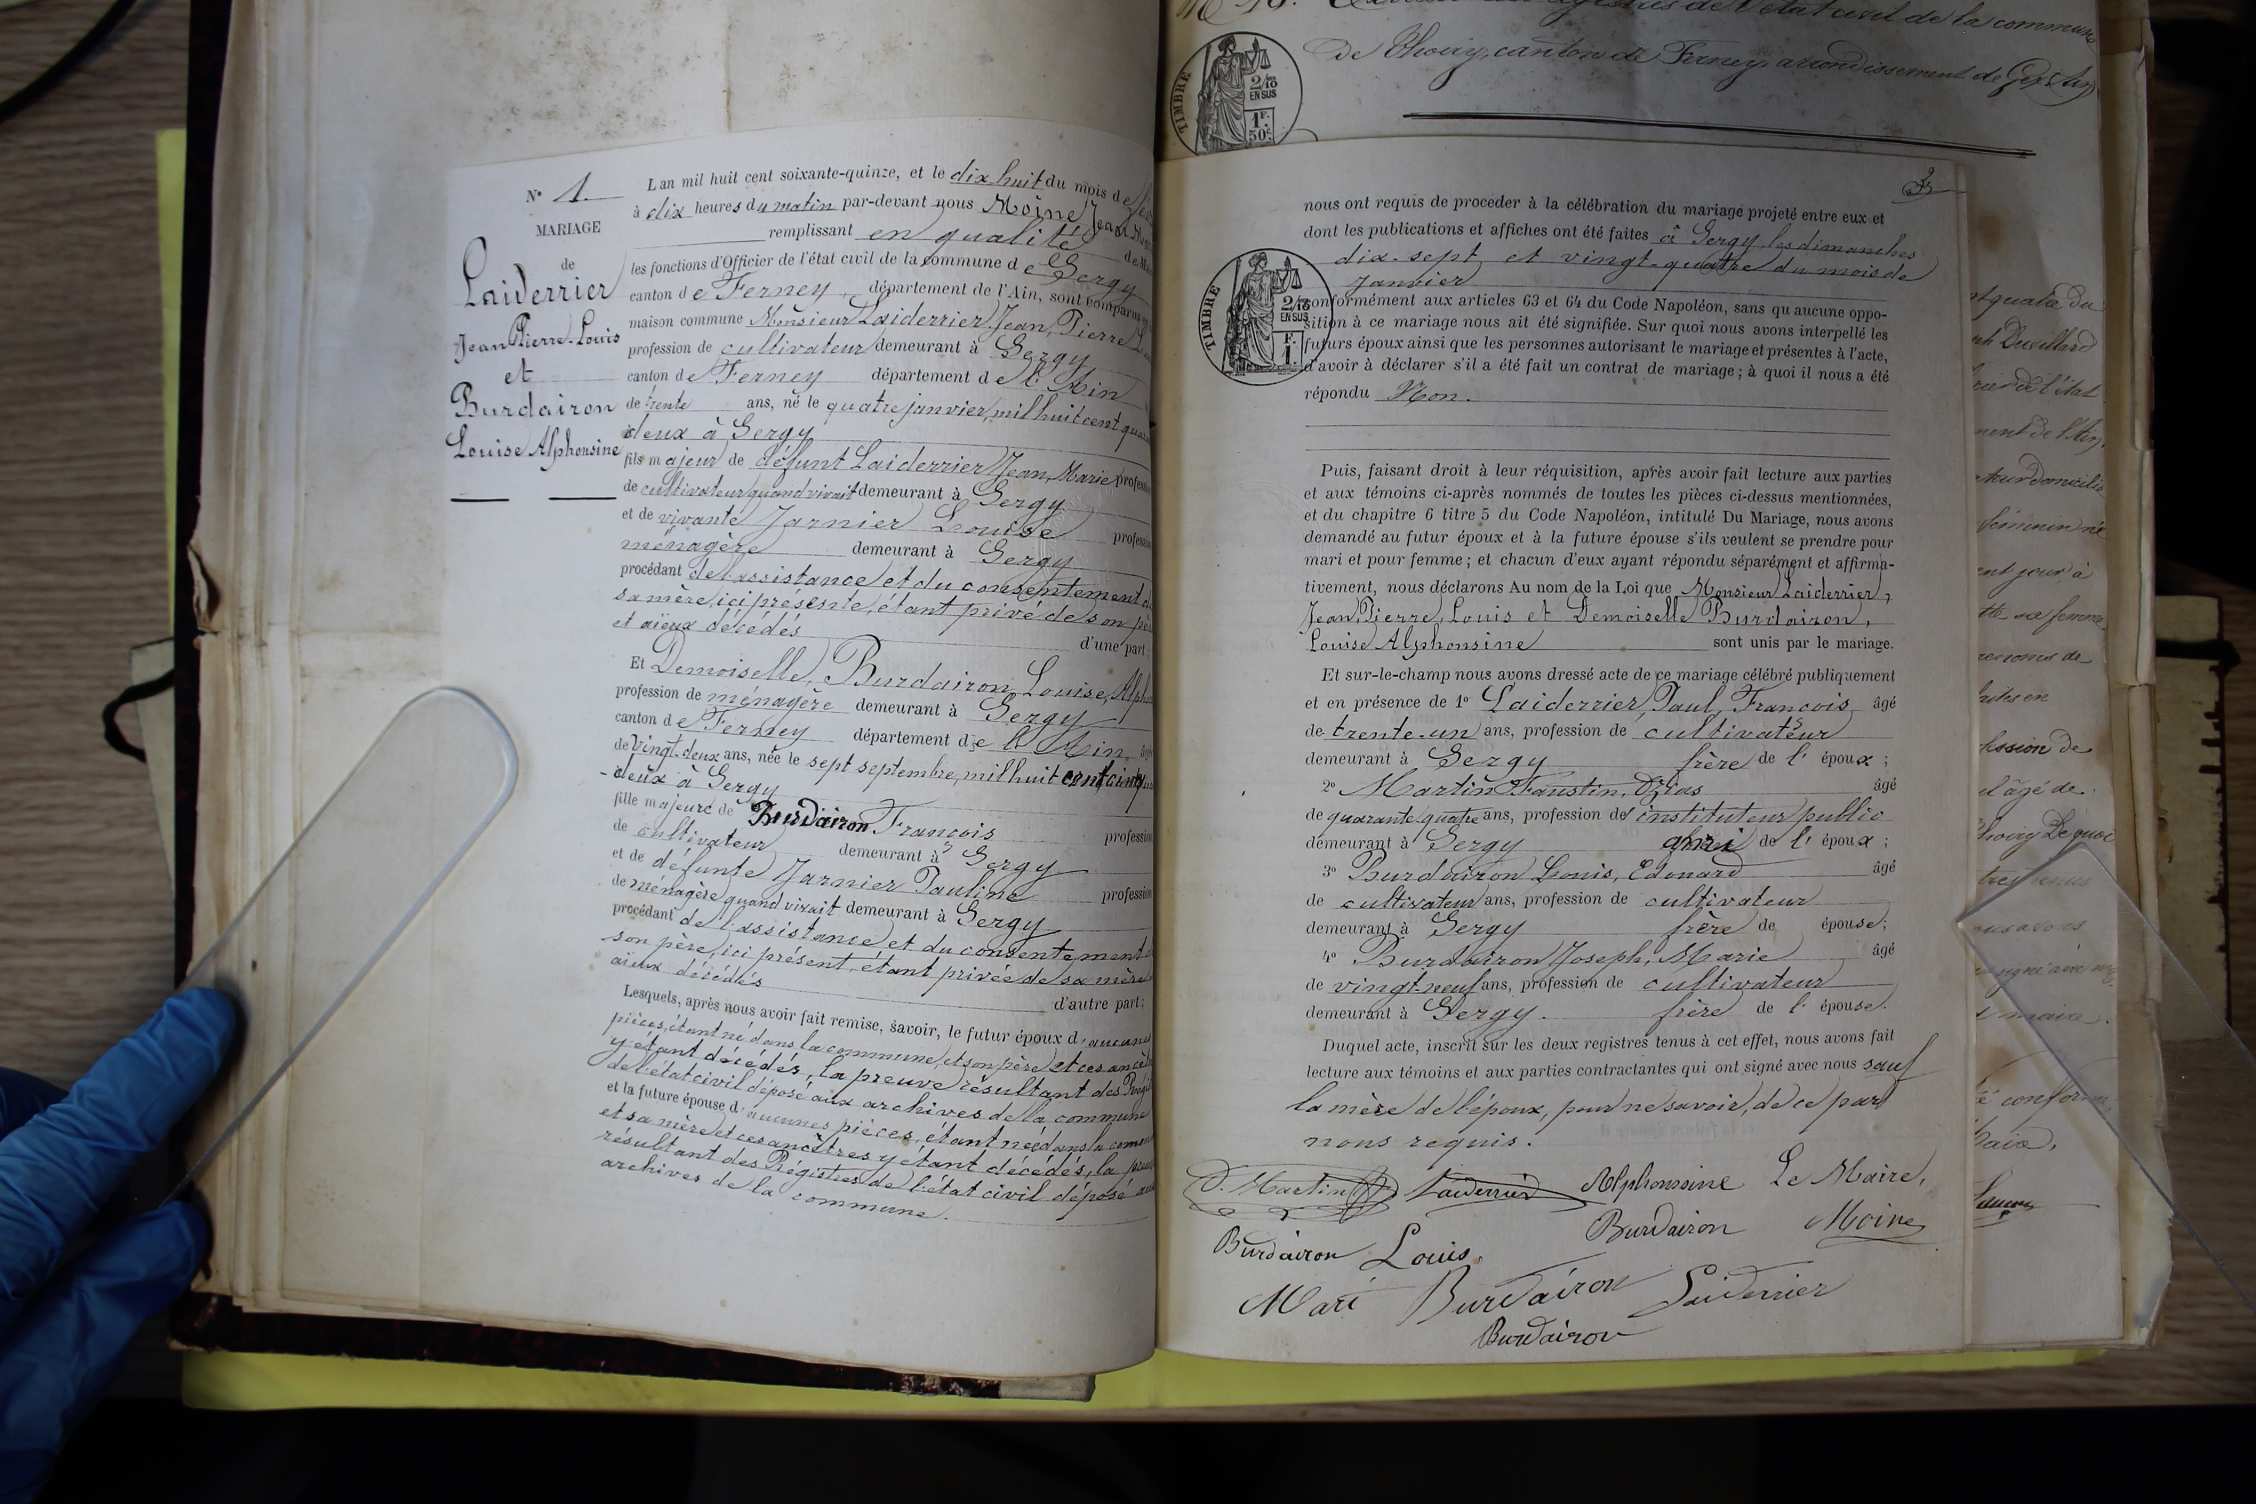 N° 1.
MARIAGE
de
Laiderrier
Jean Pierre Louis
et
Burdairon
Louise Alphonsine
L'an mil huit cent soixante-quinze, et le dix huit du mois de
à dix heures du matin par-devant nous Moine Jean
remplissant en qualité de
les fonctions d'Officier de l'état civil de la commune de Sergy
canton de Ferney, département de l'Ain, sont comparus
maison commune Monsieur Laiderrier Jean, Pierre
profession de cultivateur demeurant à Sergy
canton de Ferney département de l'Ain
de trente ans, né le quatre janvier, mil huit cent
deux à Sergy
fils majeur de défunt Laiderrier Jean, Marie profession
de cultivateur quand vivait demeurant à Sergy
et de vivante Jarnier Louise profession
ménagère demeurant à Sergy
procédant de l'assistance et du consentement de
sa mère, ici présente, étant privé de son père
et aïeux décédés d'une part
Et Demoiselle, Burdairon, Louise,
profession de ménagère demeurant à Sergy
canton de Ferney département de l'Ain
de vingt-deux ans, née le sept septembre, mil huit cent
deux à Sergy
fille majeure de Burdairon François profession
de cultivateur demeurant à Sergy
et de défunte Jarnier Pauline profession
de ménagère quand vivait demeurant à Sergy
procédant de l'assistance et du consentement
son père, ici présent, étant privée de sa mère
aïeux décédés d'autre part;
Lesquels, après nous avoir fait remise, savoir, le futur époux d'aucune
pièces, étant né dans la commune, et son père et ces
y étant décédés, la preuve résultant des
de l'état civil déposé aux archives de la commune
et la future épouse d'aucunes pièces, étant née dans la
et sa mère et ces ancêtres y étant décédés, la
résultant des Régistres de l'état civil déposé aux
archives de la commune.
de Thoiry, canton de Ferney, arrondissement de Gex
TIMBRE
2/10
EN SUS
1F.
50c.
nous ont requis de procéder à la célébration du mariage projeté entre eux et
dont les publications et affiches ont été faites à Sergy les dimanches
dix-sept et vingt-quatre du mois de
Janvier
TIMBRE
2/10
EN SUS
F.
1.
conformément aux articles 63 et 64 du Code Napoléon, sans qu'aucune oppo-
sition à ce mariage nous ait été signifiée. Sur quoi nous avons interpellé les
futurs époux ainsi que les personnes autorisant le mariage et présentes à l'acte,
d'avoir à déclarer s'il a été fait un contrat de mariage; à quoi il nous a été
répondu Non.
Puis, faisant droit à leur réquisition, après avoir fait lecture aux parties
et aux témoins ci-après nommés de toutes les pièces ci-dessus mentionnées,
et du chapitre 6 titre 5 du Code Napoléon, intitulé Du Mariage, nous avons
demandé au futur époux et à la future épouse s'ils veulent se prendre pour
mari et pour femme; et chacun d'eux ayant répondu séparément et affirma-
tivement, nous déclarons Au nom de la Loi que Monsieur Laiderrier,
Jean, Pierre, Louis et Demoiselle Burdairon,
Louise Alphonsine sont unis par le mariage.
Et sur-le-champ nous avons dressé acte de ce mariage célébré publiquement
et en présence de 1° Laiderrier, Paul, François âgé
de trente-un ans, profession de cultivateur
demeurant à Sergy frère de l'époux;
2° Martin Faustin, Ozias âgé
de quarante-quatre ans, profession d'instituteur public
demeurant à Sergy ami de l'époux;
3° Burdairon Louis, Edouard âgé
de cultivateur ans, profession de cultivateur
demeurant à Sergy frère de épouse;
4° Burdairon Joseph, Marie âgé
de vingt-neuf ans, profession de cultivateur
demeurant à Sergy. frère de l'épouse.
Duquel acte, inscrit sur les deux registres tenus à cet effet, nous avons fait
lecture aux témoins et aux parties contractantes qui ont signé avec nous sauf
la mère de l'époux, pour ne savoir, de ce par
nous requis.
Martin Laiderrier Alphonsine Le Maire,
Burdairon Louis Burdairon Moine
Mari Burdairon Laiderrier
Burdairon